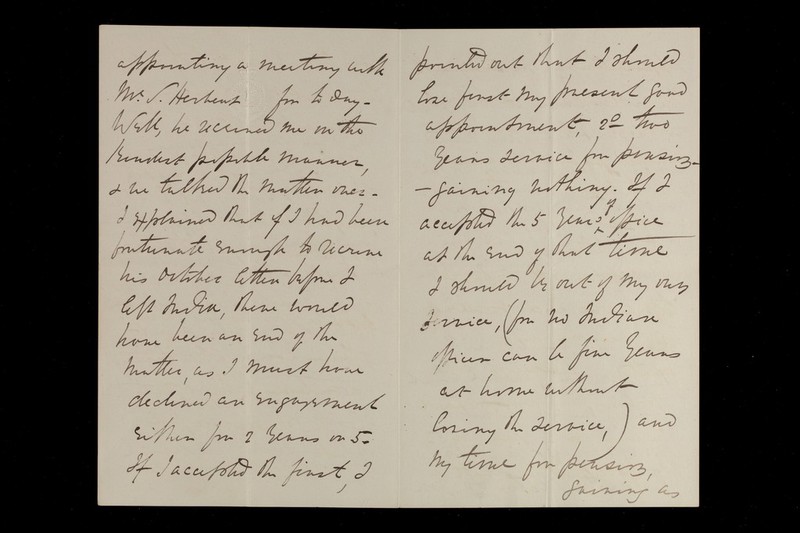 appointing a meeting with
Mr. S. Herbert for to day -
Well, he received me in the
kindest possible manner,
& we talked the matter over -
I explained that if I had been
fortunate enough to receive
his October letter before I
left India, there would
have been an end of the
matter, as I must have
declined an engagement
either for 2 years or 5.
If I accepted the first, I
pointed out that I should
lose first my present good
appointment, 2º two
years service for pension -
- gaining nothing. If I
accepted the 5 years of office
at the end of that time
I should be out of my own
service, (for no Indian
officer can be five years
at home without
losing the service,) and
my time for pension,
gaining as